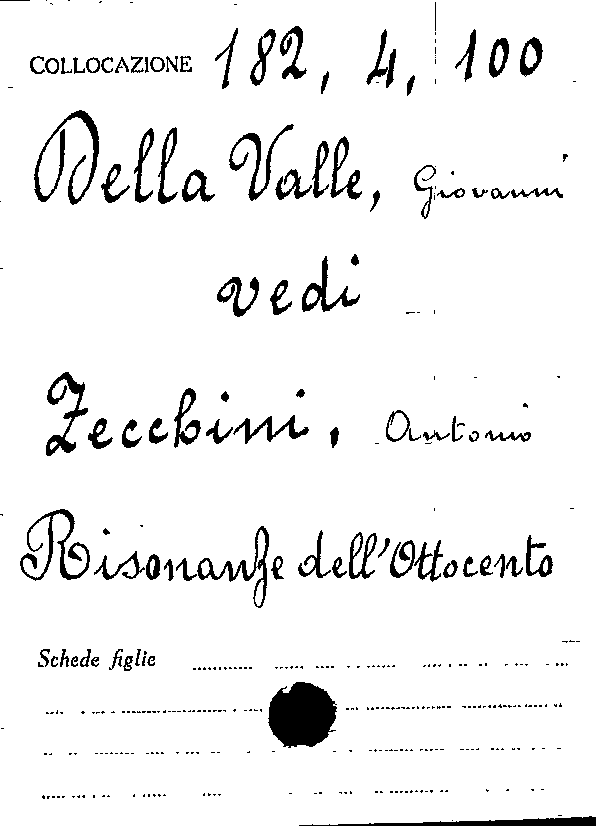 COLLOCAZIONE 182, 4, 100
Della Valle, Giovanni
vedi
Zecchini, Antonio
Risonanze dell'Ottocento
Schede figlie